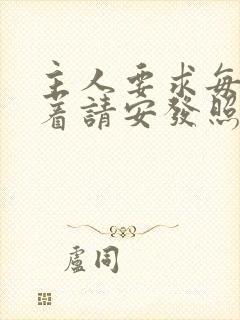 主人要求每
着請安發照
盧同